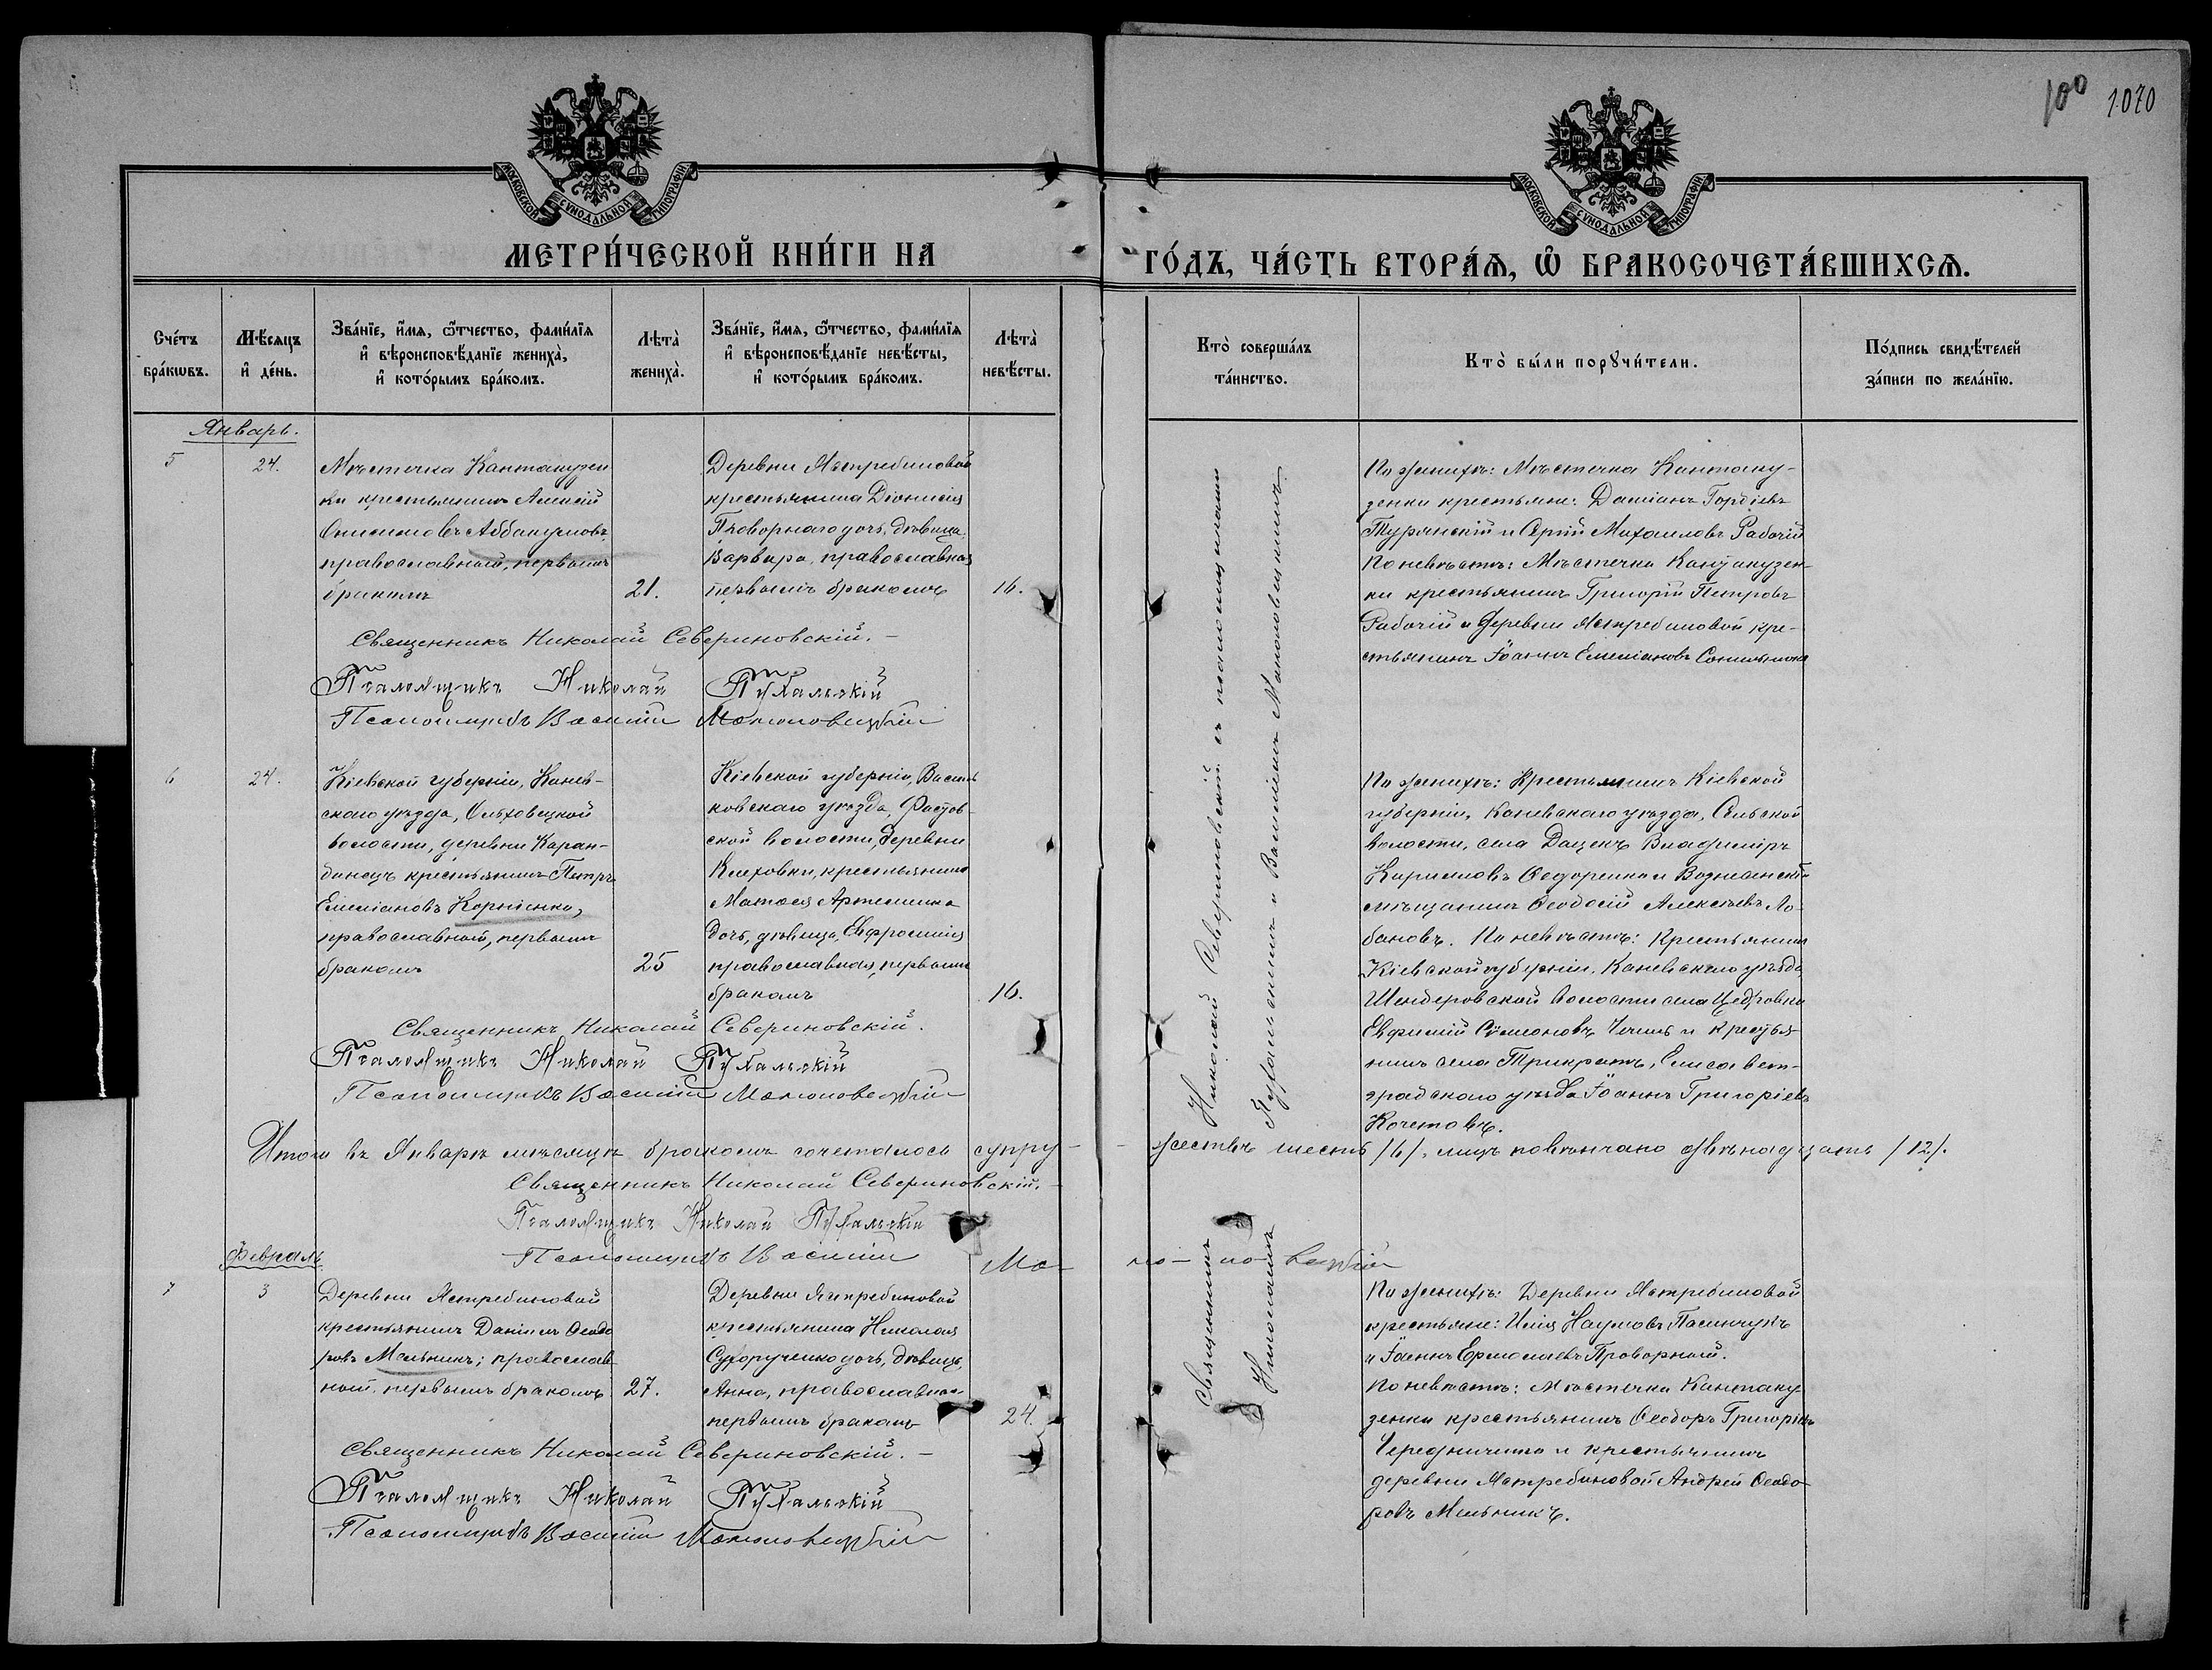 100 1070
МОСКОВСКОЙ СѴНОДАЛЬНОЙ ТИПОГРАФІИ
МОСКОВСКОЙ СѴНОДАЛЬНОЙ ТИПОГРАФІИ
МЕТРИ́ЧЕСКОЙ КНИ́ГИ НА
ГО́ДЪ, ЧА́СТЬ ВТОРА́Ѧ, Ѽ БРАКОСОЧЕТА́ВШИХСѦ.
Сче́тъ
бра́кѡвъ.
Мѣ́сяцъ
и҆ де́нь.
Зва́нїе, и҆́мѧ, ѻ҆́тчество, фами́лїѧ
и҆ вѣроисповѣ́данїе жениха̀,
и҆ кото́рымъ бра́комъ.
Лѣ́та̀
жениха̀.
Зва́нїе, и҆́мѧ, ѻ҆́тчество, фами́лїѧ
и҆ вѣроисповѣ́данїе невѣ́сты,
и҆ кото́рымъ бра́комъ.
Лѣ́та̀
невѣ́сты.
Кто̀ соверша́лъ
та́инство.
Кто̀ бы́ли порꙋчи́тели.
По́дпись свидѣ́телей
за́писи по жела́нїю.
Январь.
5
24.
Мѣстечка Кантакузен
ки крестьянинъ Алексій
Онисимовъ Аббакумовъ,
православный, первымъ
бракомъ
21.
Деревни Ястребиновой
крестьянина Діонисія
Проворнаго дочь, дѣвица
Варвара, православная
первымъ бракомъ
16.
По женихѣ: Мѣстечка Кантаку-
зенки крестьяне: Даміанъ Гордіевъ
Турянскій и Сергій Михаиловъ Рабочій
По невѣстѣ: Мѣстечка Кантакузен-
ки крестьянинъ Григорій Петровъ
Рабочій и деревни Ястребиновой кре-
стьянинъ Іоаннъ Емеліановъ
Священникъ Николай Севериновскій.
Псаломщикъ Николай Пухальскій
Псаломщикъ Василій Маноловецкій
6
24.
Кіевской губерніи, Канев-
скаго уѣзда, Ольховецкой
волости, деревни Каран-
данецъ крестьянинъ Петръ
Емеліановъ Корніенко,
православный, первымъ
бракомъ
25
Кіевской губерніи, Василь
ковскаго уѣзда, Фастов-
ской волости, деревни
Клеховки, крестьянина
Матѳея Артеменка
дочь, дѣвица, Евфросинія
православная, первымъ
бракомъ
16.
По женихѣ: Крестьянинъ Кіевской
губерніи, Каневскаго уѣзда,
волости, села Дацекъ Владиміръ
Кирилловъ Ѳедоренко и Вознесенскій
мѣщанинъ Ѳеодосій Алексѣевъ Ло-
бановъ. По невѣстѣ: Крестьянинъ
Кіевской губерніи, Каневскаго уѣзда
Шендеровской волости села
Евфимій Сѵмеоновъ и крестья-
нинъ села Трикратъ, Елисавет-
градскаго уѣзда Іоаннъ Григоріевъ
Кочетовъ.
Священникъ Николай Севериновскій.
Псаломщикъ Николай Пухальскій
Псаломщикъ Василій Маноловецкій
Итого въ Январѣ мѣсяцѣ бракомъ сочеталось супру-
жествъ шесть /6/, лицъ повѣнчано двѣнадцать /12/.
Священникъ Николай Севериновскій.
Псаломщикъ Николай Пухальскій
Псаломщикъ Василій Ма-
но-ло-вецкій
Священникъ Николай Севериновскій съ псаломщиками
Николаемъ Пухальскимъ и Василіемъ Маноловецкимъ
Февраль
7
3
Деревни Ястребиновой
крестьянинъ Даніилъ Ѳеодо
ровъ Мельникъ; православ-
ный, первымъ бракомъ
27.
Деревни Ястребиновой
крестьянина Николая
Сухорученко дочь, дѣвица,
Анна, православная
первымъ бракомъ
24.
По женихѣ: Деревни Ястребиновой
крестьяне: Илія Наумовъ Пасинчукъ
и Іоаннъ Ермолаевъ Проворный.
По невѣстѣ: Мѣстечка Кантаку-
зенки крестьянинъ Ѳеодоръ Григоріевъ
Чередниченко и крестьянинъ
деревни Ястребиновой Андрей Ѳеодо-
ровъ Мельникъ.
Священникъ Николай Севериновскій.
Псаломщикъ Николай Пухальскій
Псаломщикъ Василій Маноловецкій